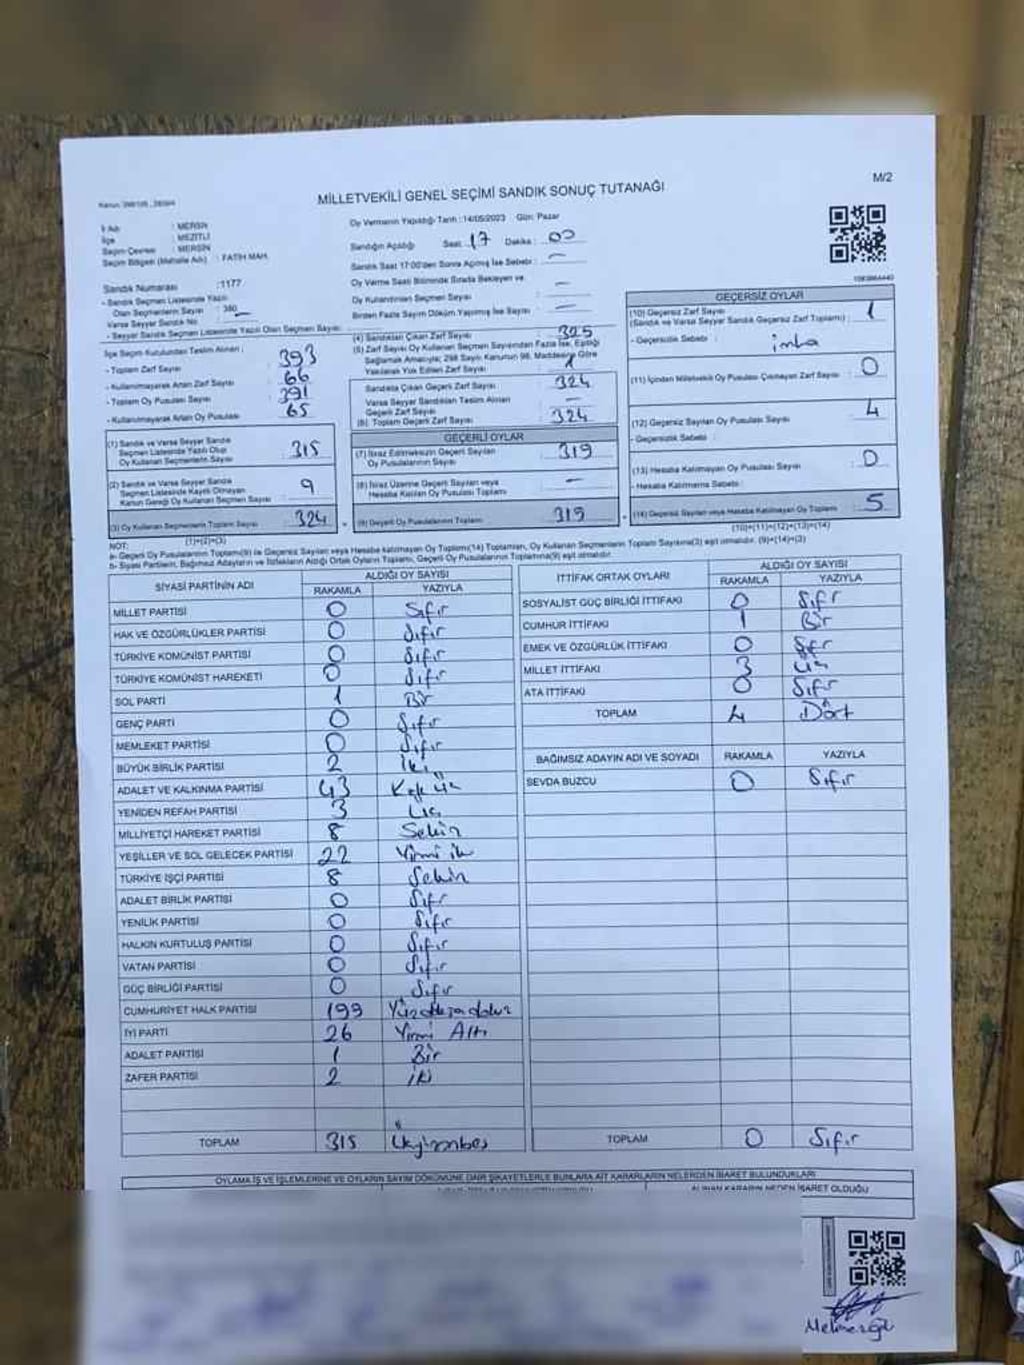 M/2
MİLLETVEKİLİ GENEL SEÇİMİ SANDIK SONUÇ TUTANAĞI
İl Adı : MERSİN
İlçe : MEZİTLİ
Seçim Çevresi : MERSİN
Seçim Bölgesi (Mahalle Adı) : FATİH MAH.
Oy Vermenin Yapıldığı Tarih : 14/05/2023 Gün: Pazar
Sandığın Açıldığı Saat 17 Dakika : 00
Sandık Saat 17:00'den Sonra Açılmış İse Sebebi : —
Oy Verme Saati Bitiminde Sırada Bekleyen ve
Oy Kullandırılan Seçmen Sayısı : —
Birden Fazla Sayım Döküm Yapılmış İse Sayısı : —
Sandık Numarası : 1177
- Sandık Seçmen Listesinde Yazılı
Olan Seçmenlerin Sayısı : 380
Varsa Seyyar Sandık No : —
- Seyyar Sandık Seçmen Listesinde Yazılı Olan Seçmen Sayısı:
İlçe Seçim Kurulundan Teslim Alınan ;
- Toplam Zarf Sayısı : 393
- Kullanılmayarak Artan Zarf Sayısı : 66
- Toplam Oy Pusulası Sayısı : 391
- Kullanılmayarak Artan Oy Pusulası : 65
(1) Sandık ve Varsa Seyyar Sandık
Seçmen Listesinde Yazılı Olup
Oy Kullanan Seçmenlerin Sayısı : 315
(2) Sandık ve Varsa Seyyar Sandık
Seçmen Listesinde Kayıtlı Olmayan
Kanun Gereği Oy Kullanan Seçmen Sayısı : 9
(3) Oy Kullanan Seçmenlerin Toplam Sayısı : 324
(1)+(2)=(3)
(4) Sandıktan Çıkan Zarf Sayısı : 325
(5) Zarf Sayısı Oy Kullanan Seçmen Sayısından Fazla İse, Eşitliği
Sağlamak Amacıyla; 298 Sayılı Kanunun 98. Maddesine Göre
Yakılarak Yok Edilen Zarf Sayısı : 1
Sandıkta Çıkan Geçerli Zarf Sayısı : 324
Varsa Seyyar Sandıktan Teslim Alınan
Geçerli Zarf Sayısı : —
(6) Toplam Geçerli Zarf Sayısı : 324
GEÇERLİ OYLAR
(7) İtiraz Edilmeksizin Geçerli Sayılan
Oy Pusulalarının Sayısı : 319
(8) İtiraz Üzerine Geçerli Sayılan veya
Hesaba Katılan Oy Pusulası Toplamı : —
(9) Geçerli Oy Pusulalarının Toplamı : 319
GEÇERSİZ OYLAR
(10) Geçersiz Zarf Sayısı : 1
(Sandık ve Varsa Seyyar Sandık Geçersiz Zarf Toplamı)
- Geçersizlik Sebebi : imha
(11) İçinden Milletvekili Oy Pusulası Çıkmayan Zarf Sayısı : 0
(12) Geçersiz Sayılan Oy Pusulası Sayısı : 4
- Geçersizlik Sebebi :
(13) Hesaba Katılmayan Oy Pusulası Sayısı : 0
- Hesaba Katılmama Sebebi :
(14) Geçersiz Sayılan veya Hesaba Katılmayan Oy Toplamı : 5
(10)+(11)+(12)+(13)=(14)
NOT:
a- Geçerli Oy Pusulaları Toplamı(9) ile Geçersiz Sayılan veya Hesaba katılmayan Oy Toplamı(14) Toplamları, Oy Kullanan Seçmenlerin Toplam Sayısına(3) eşit olmalıdır. (9)+(14)=(3)
b- Siyasi Partilerin, Bağımsız Adayların ve İttifakların Aldığı Ortak Oyların Toplamı, Geçerli Oy Pusulalarının Toplamına(9) eşit olmalıdır.
SİYASİ PARTİNİN ADI ALDIĞI OY SAYISI
RAKAMLA YAZIYLA
MİLLET PARTİSİ 0 Sıfır
HAK VE ÖZGÜRLÜKLER PARTİSİ 0 Sıfır
TÜRKİYE KOMÜNİST PARTİSİ 0 Sıfır
TÜRKİYE KOMÜNİST HAREKETİ 0 Sıfır
SOL PARTİ 1 Bir
GENÇ PARTİ 0 Sıfır
MEMLEKET PARTİSİ 0 Sıfır
BÜYÜK BİRLİK PARTİSİ 2 İki
ADALET VE KALKINMA PARTİSİ 43 Kırk üç
YENİDEN REFAH PARTİSİ 3 Üç
MİLLİYETÇİ HAREKET PARTİSİ 8 Sekiz
YEŞİLLER VE SOL GELECEK PARTİSİ 22 Yirmi iki
TÜRKİYE İŞÇİ PARTİSİ 8 Sekiz
ADALET BİRLİK PARTİSİ 0 Sıfır
YENİLİK PARTİSİ 0 Sıfır
HALKIN KURTULUŞ PARTİSİ 0 Sıfır
VATAN PARTİSİ 0 Sıfır
GÜÇ BİRLİĞİ PARTİSİ 0 Sıfır
CUMHURİYET HALK PARTİSİ 199 Yüzdoksandokuz
İYİ PARTİ 26 Yirmi Altı
ADALET PARTİSİ 1 Bir
ZAFER PARTİSİ 2 iki
TOPLAM 315 Üçyüzonbeş
İTTİFAK ORTAK OYLARI ALDIĞI OY SAYISI
RAKAMLA YAZIYLA
SOSYALİST GÜÇ BİRLİĞİ İTTİFAKI 0 Sıfır
CUMHUR İTTİFAKI 1 Bir
EMEK VE ÖZGÜRLÜK İTTİFAKI 0 Sıfır
MİLLET İTTİFAKI 3 Üç
ATA İTTİFAKI 0 Sıfır
TOPLAM 4 Dört
BAĞIMSIZ ADAYIN ADI VE SOYADI RAKAMLA YAZIYLA
SEVDA BUZCU 0 Sıfır
TOPLAM 0 Sıfır
OYLAMA İŞ VE İŞLEMLERİNE VE OYLARIN SAYIM DÖKÜMÜNE DAİR ŞİKAYETLERLE BUNLARA AİT KARARLARIN NELERDEN İBARET BULUNDUKLARI
ALINAN KARARIN NEDEN İBARET OLDUĞU